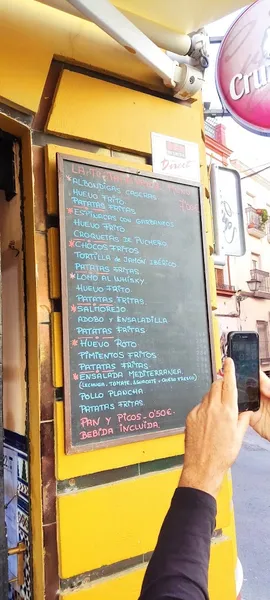 *ALBÓNDIGAS CASERAS
HUEVO FRITO
PATATAS FRITAS
*ESPINACAS CON GARBANZOS
HUEVO FRITO
CROQUETAS DE PUCHERO
*CHOCOS FRITOS
TORTILLA DE JAMÓN IBÉRICO
PATATAS FRITAS
*LOMO AL WHISKY
HUEVO FRITO
PATATAS FRITAS
*SALMOREJO
ADOBO Y ENSALADILLA
PATATAS FRITAS
*HUEVO ROTO
PIMIENTOS FRITOS
PATATAS FRITAS
*ENSALADA MEDITERRANEA
(LECHUGA, TOMATE, AGUACATE Y QUESO FRESCO)
POLLO PLANCHA
PATATAS FRITAS
PAN Y PICOS-0'50€
BEBIDA INCLUIDA
Cruz